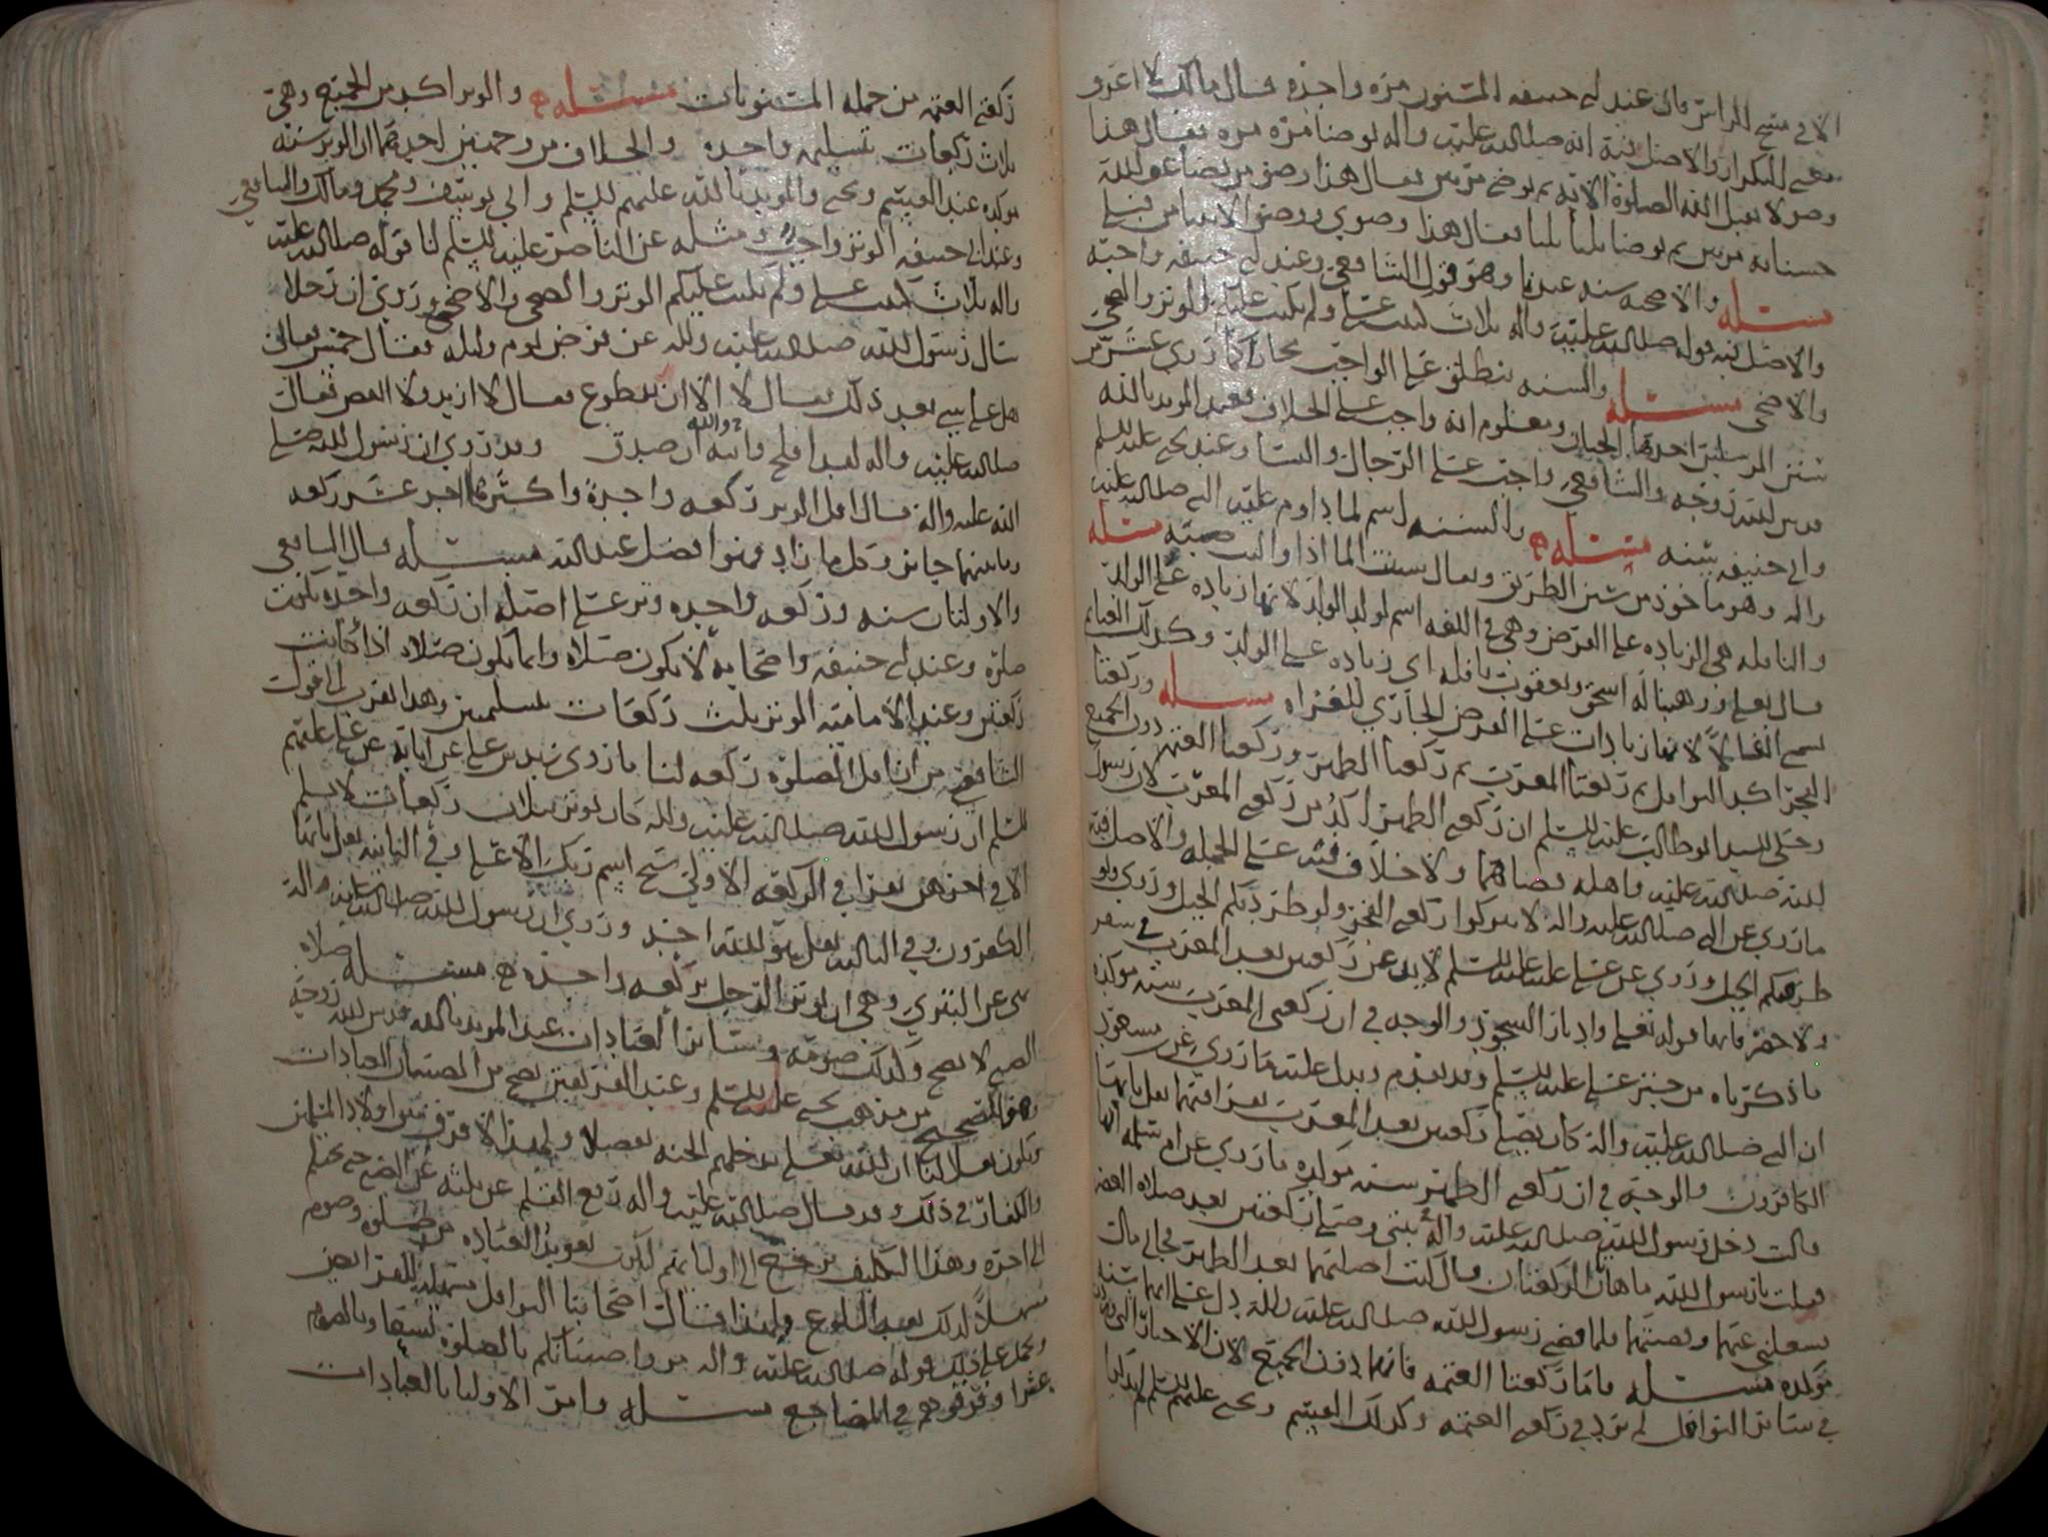 الا في مسح الراس فان عند ابي حنيفه المسنون مره واحده وقال مالك لا اعرف
معنى التكرار والاصل فيه انه صلى الله عليه واله توضا مره مره فقال هذا
وضو لا يقبل الله الصلوة الا به ثم توضى مرتين فقال هذا وضو من يضاعف الله
حسناته مرتين ثم توضا ثلثا ثلثا فقال هذا وضوي ووضو الانبيا من قبلي
مسئله والاضحيه سنه عندنا وهو قول الشافعي وعند ابي حنيفه واجبه
والاصل فيه قوله صلى الله عليه واله ثلاث كتبت علي ولم تكتب عليكم الوتر والضحى
والاضحى مسئله والسنه تنطلق على الواجب مجازا كما روي عشر من
سنن المرسلين احدها الختان ومعلوم انه واجب على الخلاف فعند المويد بالله
قدس الله روحه والشافعي واجب على الرجال والنسا وعند يحيى عليه السلم
وابي حنيفه سنه مسئله والسنه اسم لما داوم عليه النبي صلى الله عليه
واله وهو ماخوذ من سنن الطريق ويقال سننت الما اذا واليت صبه مسئله
والنافله هي الزياده على الفرض وهي في اللغه اسم لولد الولد لانها زياده على الولد
قال تعالى ووهبنا له اسحق ويعقوب نافله اي زياده على الولد وكذلك الغنائم
سمي انفالا لانها زيادات على الفرض الجاري للغزاه مسئله وركعتا
الفجر اكد النوافل ثم ركعتا المغرب ثم ركعتا الظهر وركعتا العتمه دون الجميع
وحكى السيد ابو طالب عليه السلم ان ركعتي الظهر اكد من ركعتي المغرب لان رسول
الله صلى الله عليه واهله قضاهما ولا خلاف فيه على الجمله والاصل فيه
ما روي عن النبي صلى الله عليه واله لا تتركوا ركعتي الفجر ولو طردتكم الخيل وروي ولو
طرقتكم الخيل وروي عن علي عليه السلم لا تدعن ركعتين بعد المغرب في سفر
ولا حضر فانها قوله تعالى وادبار السجود والوجه في ان ركعتي المغرب سنه موكده
ما ذكرناه من خبر علي عليه السلم وقد تقدم ويدل عليه ما روي عن مسعود
ان النبي صلى الله عليه واله كان يصلي ركعتين بعد المغرب يقرا فيهما قل يا ايها
الكافرون والوجه في ان ركعتي الظهر سنه موكده ما روي عن ام سلمه انها
قالت دخل رسول الله صلى الله عليه واله بيتي وصلى ركعتين بعد صلاه العصر
فقلت يا رسول الله ما هاتان الركعتان قال كنت اصليهما بعد الظهر فجاني مال
فشغلني عنهما وقضيتهما فلما قضى رسول الله صلى الله عليه واله دل على انهما سنه
موكده مسئله فاما ركعتا العتمه فانهما دون الجميع لان الاخبار التي وردت
في سائر النوافل لم ترد في ركعتي العتمه وكذلك القسم ويحيى عليهما السلم لم يذكرا
ركعتي العتمه من جمله المسنونات مسئله والوتر اكد من الجميع وهي
ثلاث ركعات بتسليمه واحده والخلاف من وجهين احدهما ان الوتر سنه
موكده عند القسم ويحيى والمويد بالله عليهم السلم وابي يوسف ومحمد ومالك والشافعي
وعند ابي حنيفه الوتر واجب ومثله عن الناصر عليه السلم لنا قوله صلى الله عليه
واله ثلاث كتبت علي ولم تكتب عليكم الوتر والضحى والاضحى وروي ان رجلا
سال رسول الله صلى الله عليه واله عن فرض يوم وليله فقال خمس فقال
هل علي شي بعد ذلك فقال لا الا ان تتطوع فقال لا ازيد ولا انقص فقال
صلى الله عليه واله لقد افلح والله ان صدق وقد روي ان رسول الله صلى
الله عليه واله قال اقل الوتر ركعه واحدة واكثرها احد عشر ركعه
وما بينهما جائز وكل ما زاد فهو افضل عند الله مسئله قال الشافعي
والاولتان سنه وركعه واحده وتر على اصله ان ركعه واحده تكون
صلوة وعند ابي حنيفه واصحابه لا يكون صلاة وانما يكون صلاه اذا كانت
ركعتين وعند الاماميه الوتر ثلث ركعات بتسليمتين وهذا يقرب الى قول
الشافعي من ان اقل الصلوة ركعه لنا ما روى زيد بن علي عن ابائه عن علي عليهم
السلم ان رسول الله صلى الله عليه واله كان يوتر بثلاث ركعات لا يسلم
الا في اخرهن يقرا في الركعه الاولى سبح اسم ربك الاعلى وفي الثانيه قل يا ايها
الكافرون وفي الثالثه قل هو الله احد وروي ان رسول الله صلى الله عليه واله
نهى عن البتري وهي ان يوتر الرجل بركعه واحده مسئله صلاه
الصبي لا تصح وكذلك صومه وسائر العبادات عند المويد بالله قدس الله روحه
وهو الصحيح من مذهب يحيى عليه السلم وعند الفريقين تصح من الصبيان العبادات
وتكون نفلا لنا ان الله تعالى يدخلهم الجنه تفضلا ولهذا لا فرق بين اولاد المسلمين
والكفار في ذلك وقد قال صلى الله عليه واله رفع القلم عن ثلثه عن الصبي حتى يحتلم
الى اخره وهذا التكليف يرجع الى اوليائهم ليكون تعويد العباده من صلوة وصوم
تسهيلا لذلك بعد البلوغ ولهذا قالت اصحابنا النوافل تسهيل للفرائض
ويحمل على ذلك قوله صلى الله عليه واله مروا صبيانكم بالصلوة لسبع واضربوهم
عشرا وفرقوهم في المضاجع مسئله وامر الاوليا بالعبادات